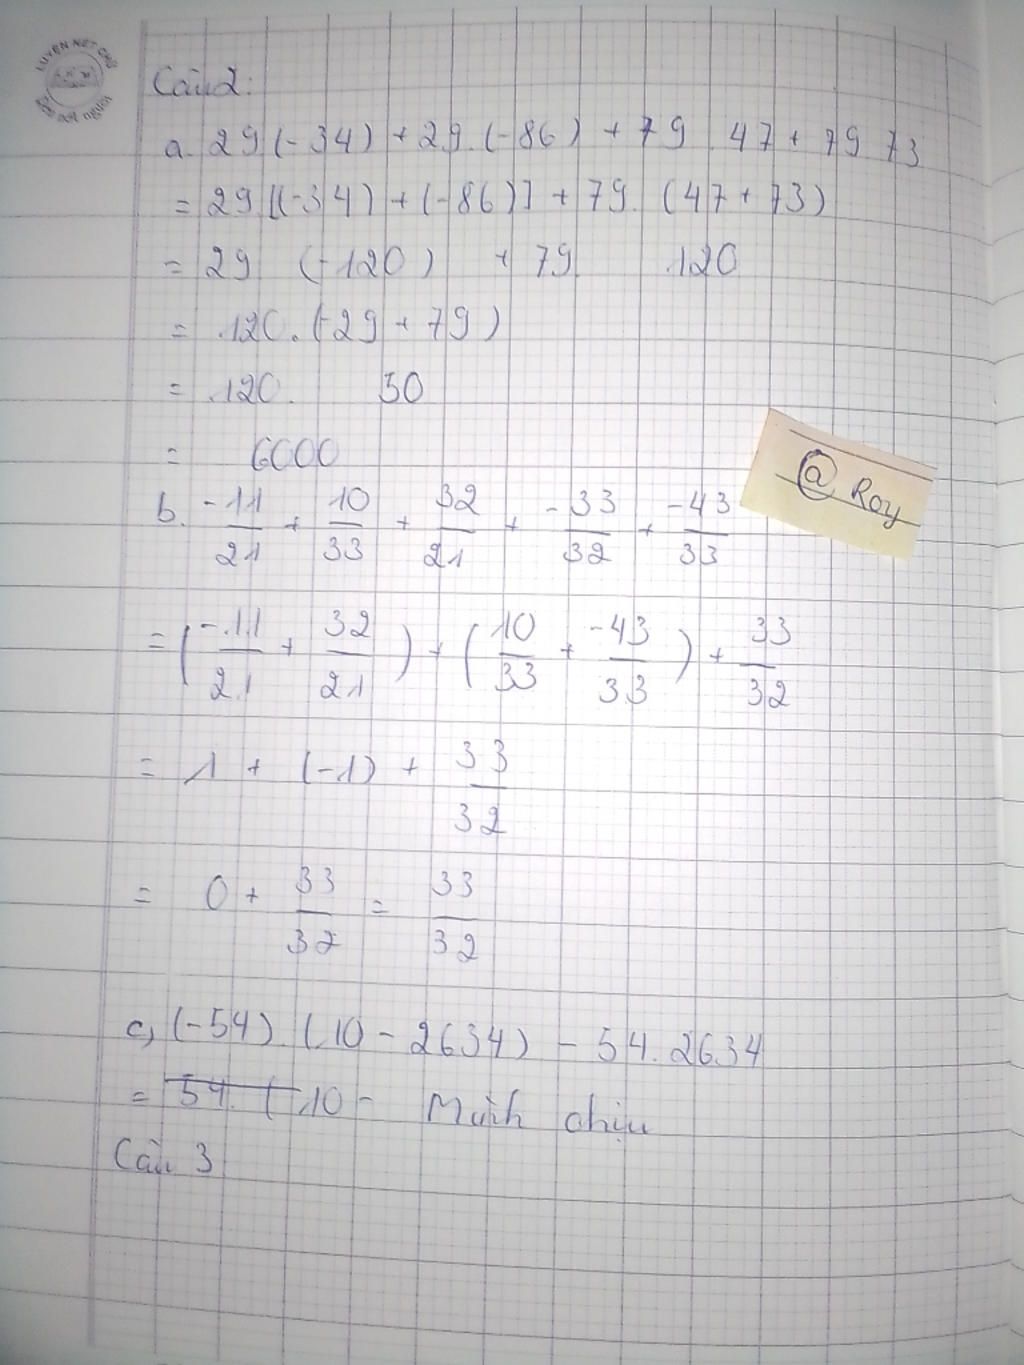 LUYỆN NÉT CHỮ
Câu 2:
a. 29 (-34) + 29. (-86) + 79 . 47 + 79 73
= 29 [(-34) + (-86)] + 79. (47 + 73)
= 29 (-120) + 79 120
= 120. (-29 + 79)
= 120. 50
= 6000
@ Roy
b. -11/21 + 10/33 + 32/21 + -33/32 + -43/33
= (-11/21 + 32/21) + (10/33 + -43/33) + 33/32
= 1 + (-1) + 33/32
= 0 + 33/32 = 33/32
c, (-54). (10 - 2634) - 54. 2634
= 54. (10 - Mình chịu
Câu 3